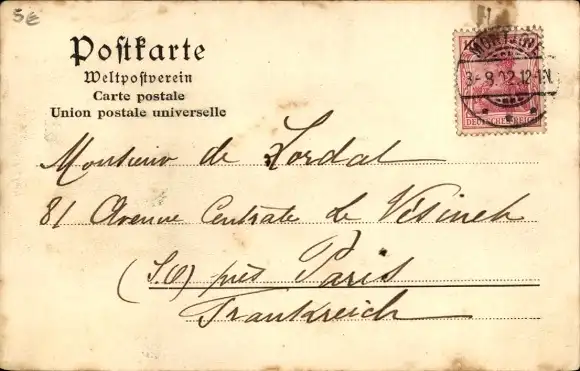 5€
Postkarte
Weltpostverein
Carte postale
Union postale universelle
3-8 02 12-1N
DEUTSCHES REICH
Monsieur de Lordat
81 Avenue Centrale Le Vésinet
(S.O) près Paris
Frankreich